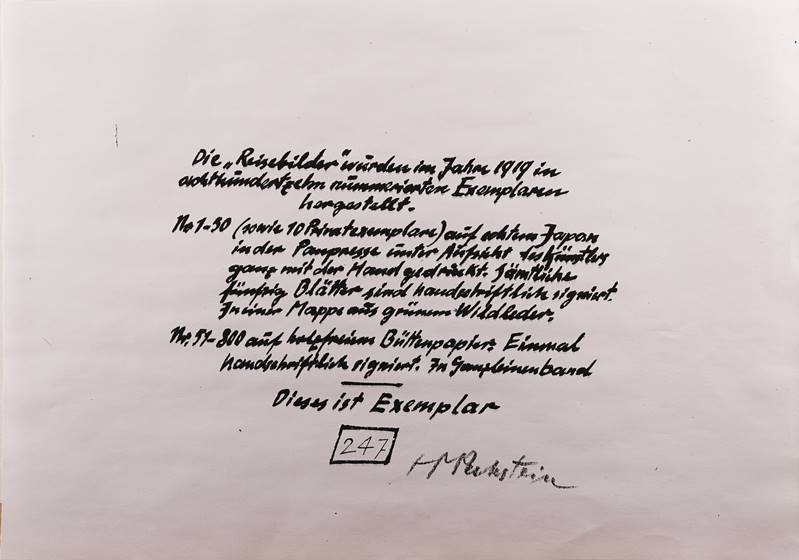 Die „Reisebilder" wurden im Jahre 1919 in
achthundertzehn nummerierten Exemplaren
hergestellt.
Nr. 1-50 (sowie 10 Privatexemplare) auf echtem Japan
in der Panpresse unter Aufsicht des Künstlers
ganz mit der Hand gedruckt. Sämtliche
fünfzig Blätter sind handschriftlich signiert.
In einer Mappe aus grünem Wildleder.
Nr. 51-800 auf holzfreiem Büttenpapier. Einmal
handschriftlich signiert. In Ganzleinenband
Dieses ist Exemplar
247
HM Pechstein